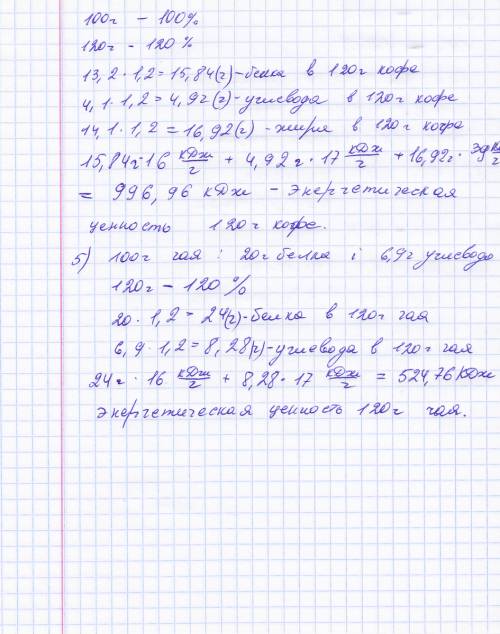 100г - 100%
120г - 120%
13,2 · 1,2 = 15,84(г)-белка в 120г кофе
4,1 · 1,2 = 4,92(г)-углевода в 120г кофе
14,1 · 1,2 = 16,92(г) - жира в 120г кофе
15,84г·16 кДж/г + 4,92г · 17 кДж/г + 16,92г ·
= 996,96 кДж - энергетическая
ценность 120г кофе.
5) 100г чая : 20г белка i 6,9г углевода
120г - 120%
20 · 1,2 = 24(г)-белка в 120г чая
6,9 · 1,2 = 8,28(г)-углевода в 120г чая
24г · 16 кДж/г + 8,28 · 17 кДж/г = 524,76 кДж
энергетическая ценность 120г чая.